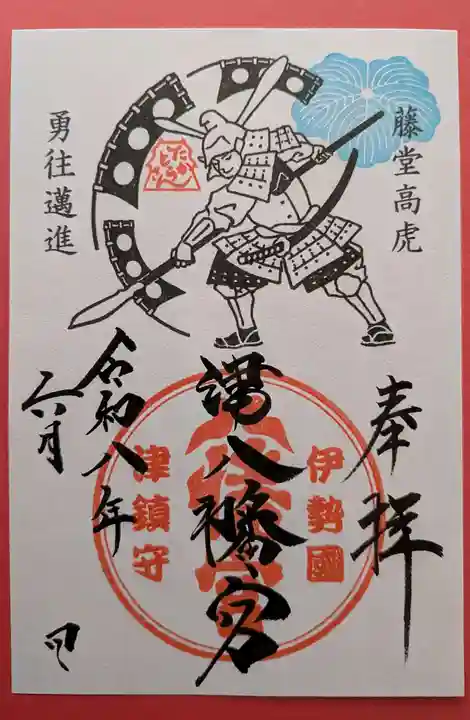 藤堂高虎
勇往邁進
奉拝
伊勢國
八幡宮
津鎮守
令和八年
六月 日